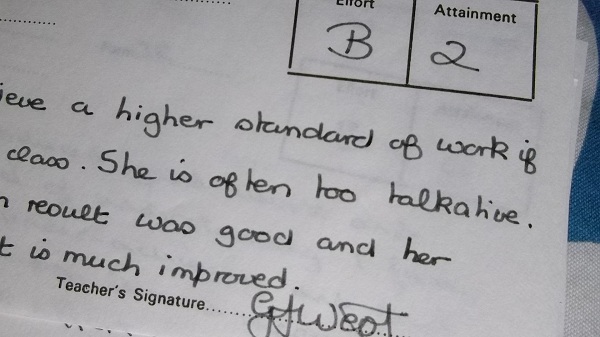 Effort Attainment
B 2
ieve a higher standard of work if
class. She is often too talkative.
n result was good and her
t is much improved.
Teacher's Signature..........